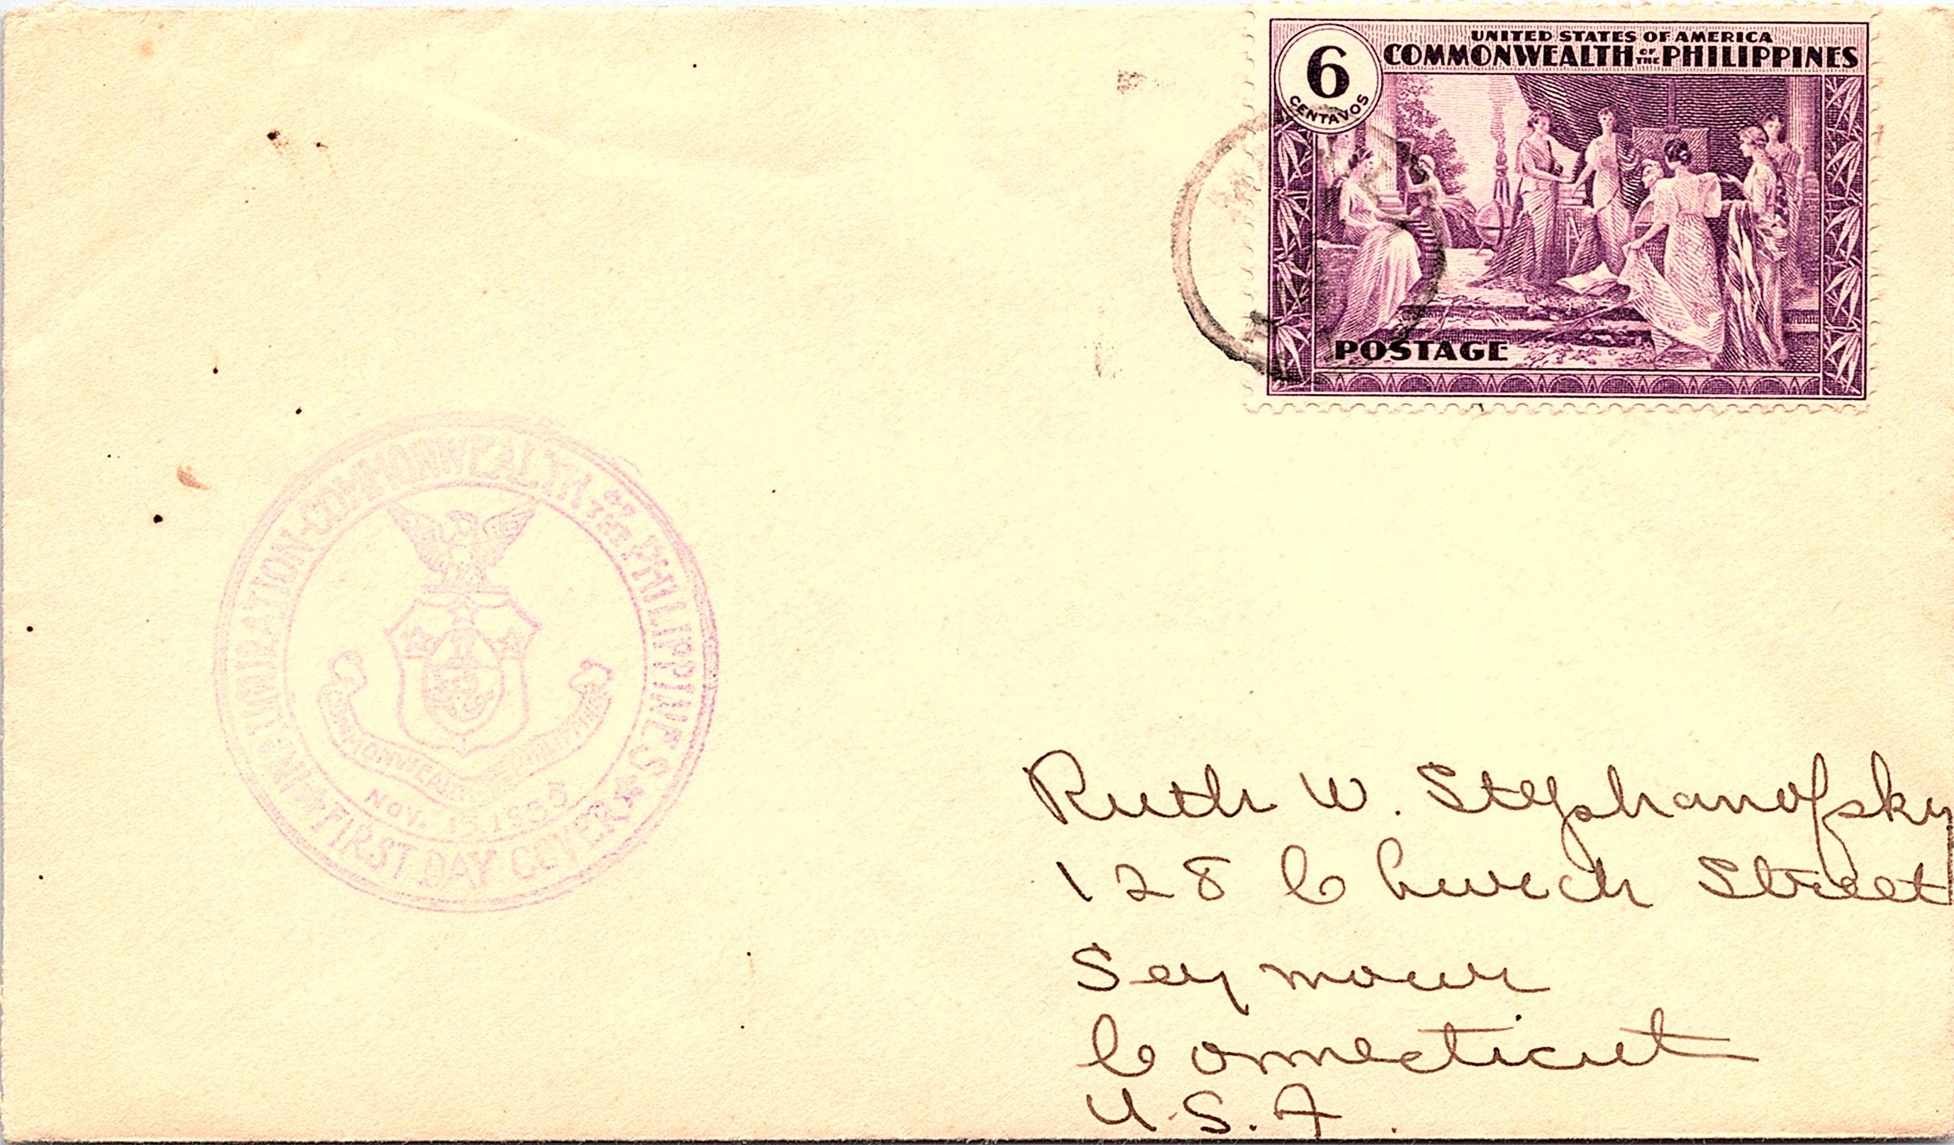 6
CENTAVOS
UNITED STATES OF AMERICA
COMMONWEALTH OF THE PHILIPPINES
POSTAGE
INAUGURATION-COMMONWEALTH OF THE PHILIPPINES
COMMONWEALTH OF THE PHILIPPINES
NOV. 15, 1935
FIRST DAY COVER
Ruth W. Stephanofsky
128 Church Street
Seymour
Connecticut
U.S.A.